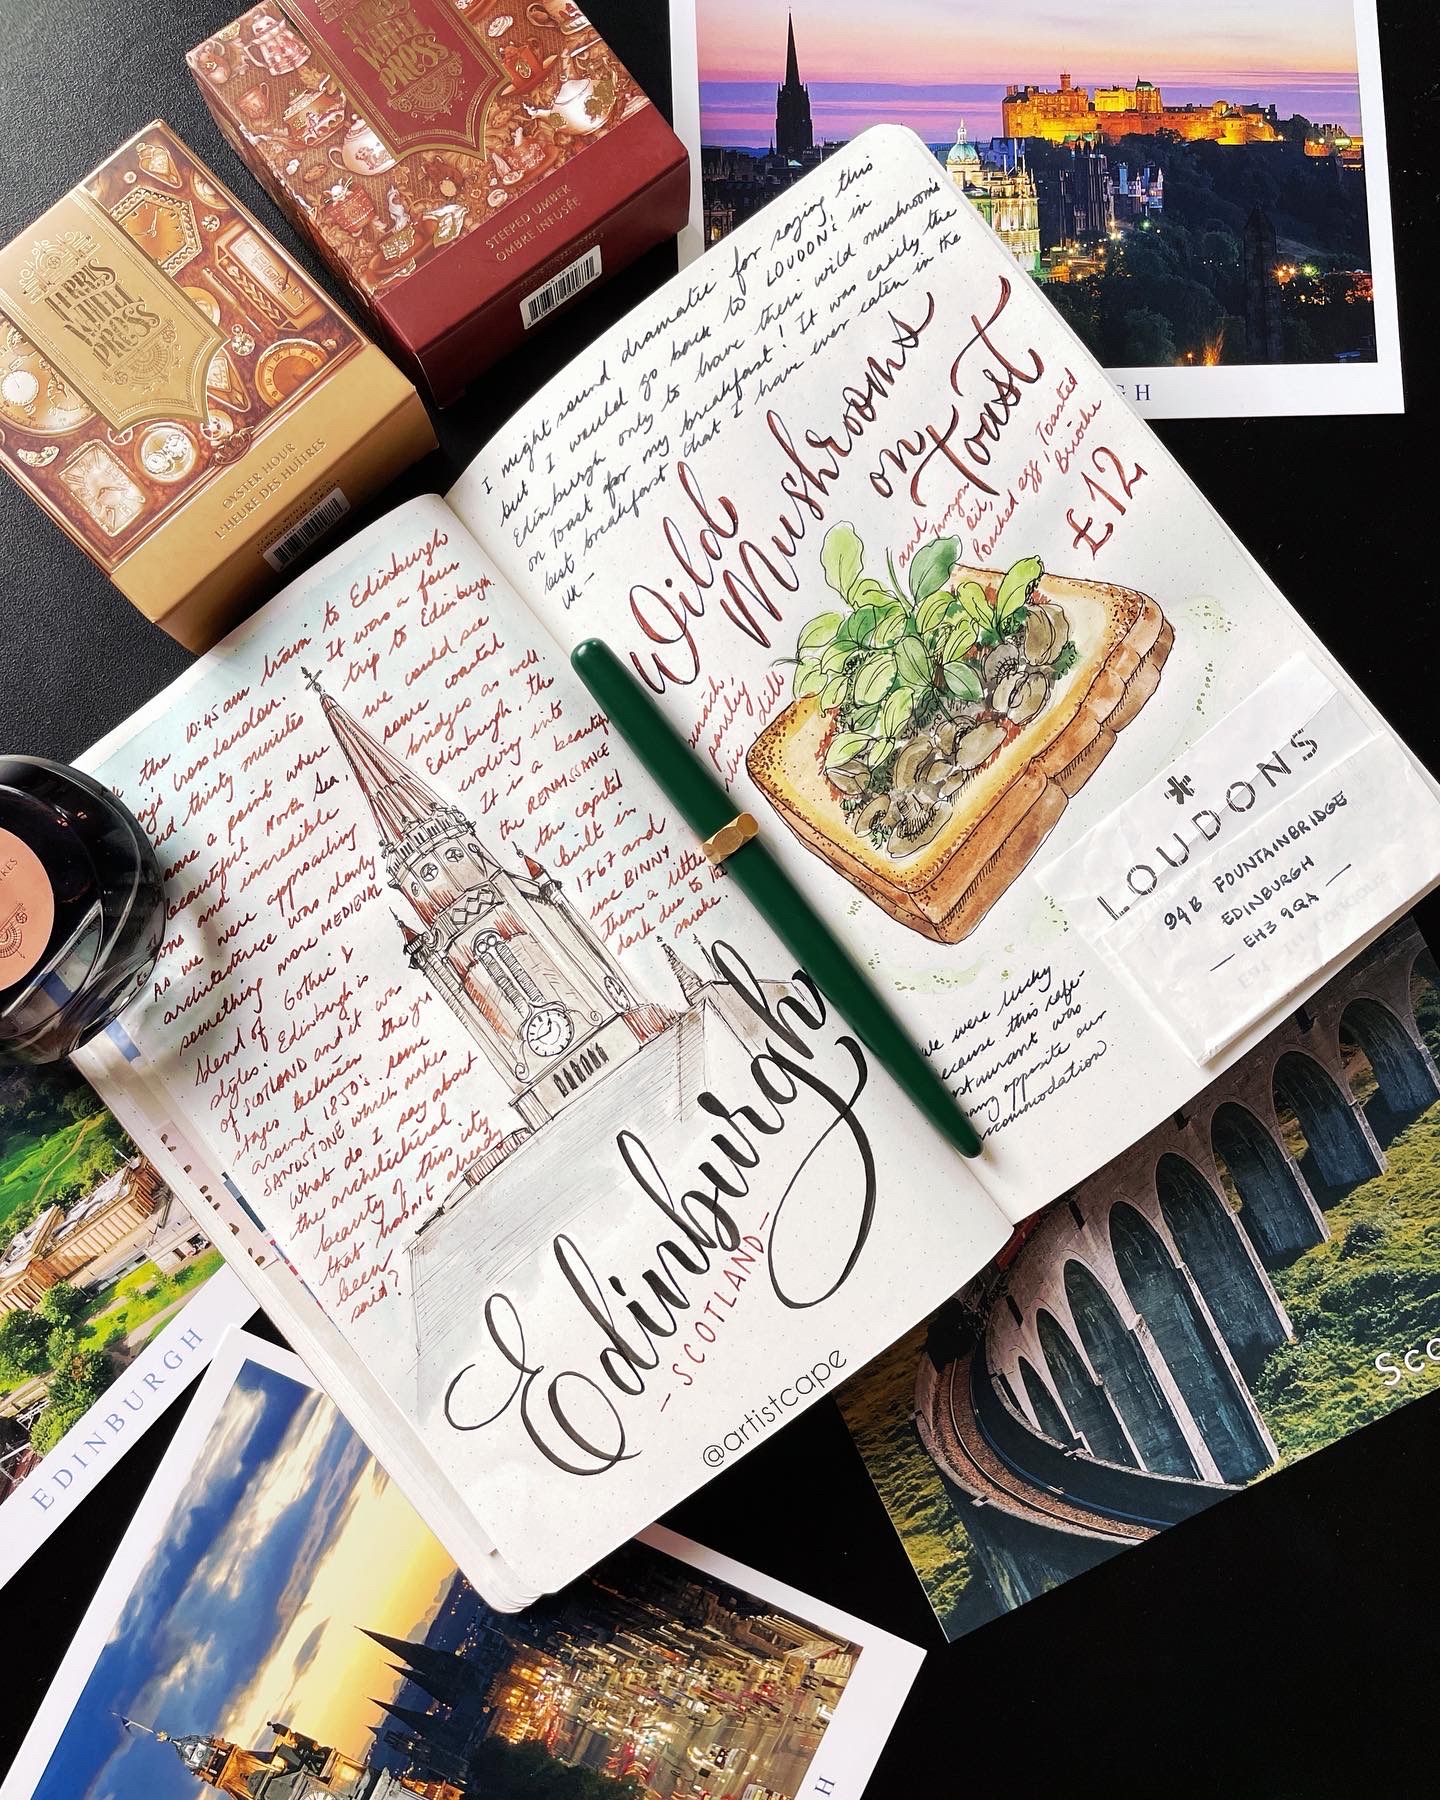 FERRIS
WHEEL
PRESS
STEEPED UMBER
OMBRE INFUSÉE
FERRIS
WHEEL
PRESS
OYSTER HOUR
L'HEURE DES HUÎTRES
the 10:45 am train to Edinburgh
King's Cross London. It was a four
and thirty minutes trip to Edinburgh.
came a point where we could see
beautiful North Sea, some coastal
and incredible bridges as well.
As we were approaching Edinburgh, the
architecture was slowly evolving into
something more MEDIEVAL. It is a beautiful
blend of Gothic & the RENAISSANCE
styles. Edinburgh is the capital
of SCOTLAND and it was built in
stages between the yrs 1767 and
around 1850's. some use BINNY
SANDSTONE which makes them a little
dark due to the
smoke.
What do I say about
the architectural
beauty of this city
that hasn't already
been
said?
Edinburgh
- SCOTLAND -
@artistcape
I might sound dramatic for saying this
but I would go back to LOUDONS in
Edinburgh only to have their wild mushrooms
on Toast for my breakfast! It was easily the
best breakfast that I have ever eaten in the
UK -
Wild
Mushrooms
on
Toast
and Tarragon
oil,
Poached egg, Toasted
Brioche
£12
parsley
dill
LOUDONS
94B FOUNTAINBRIDGE
EDINBURGH
EH3 9QA
we were lucky
because this cafe-
restaurant was
bang opposite our
accommodation
EDINBURGH
GH
H
Sco